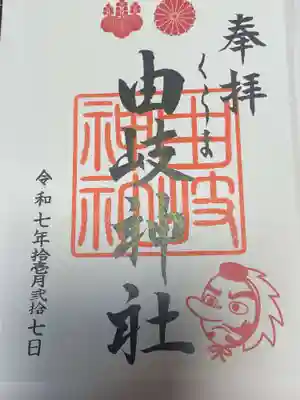 奉拝
くらま
由岐神社
由岐神社
令和七年拾壱月弐拾七日